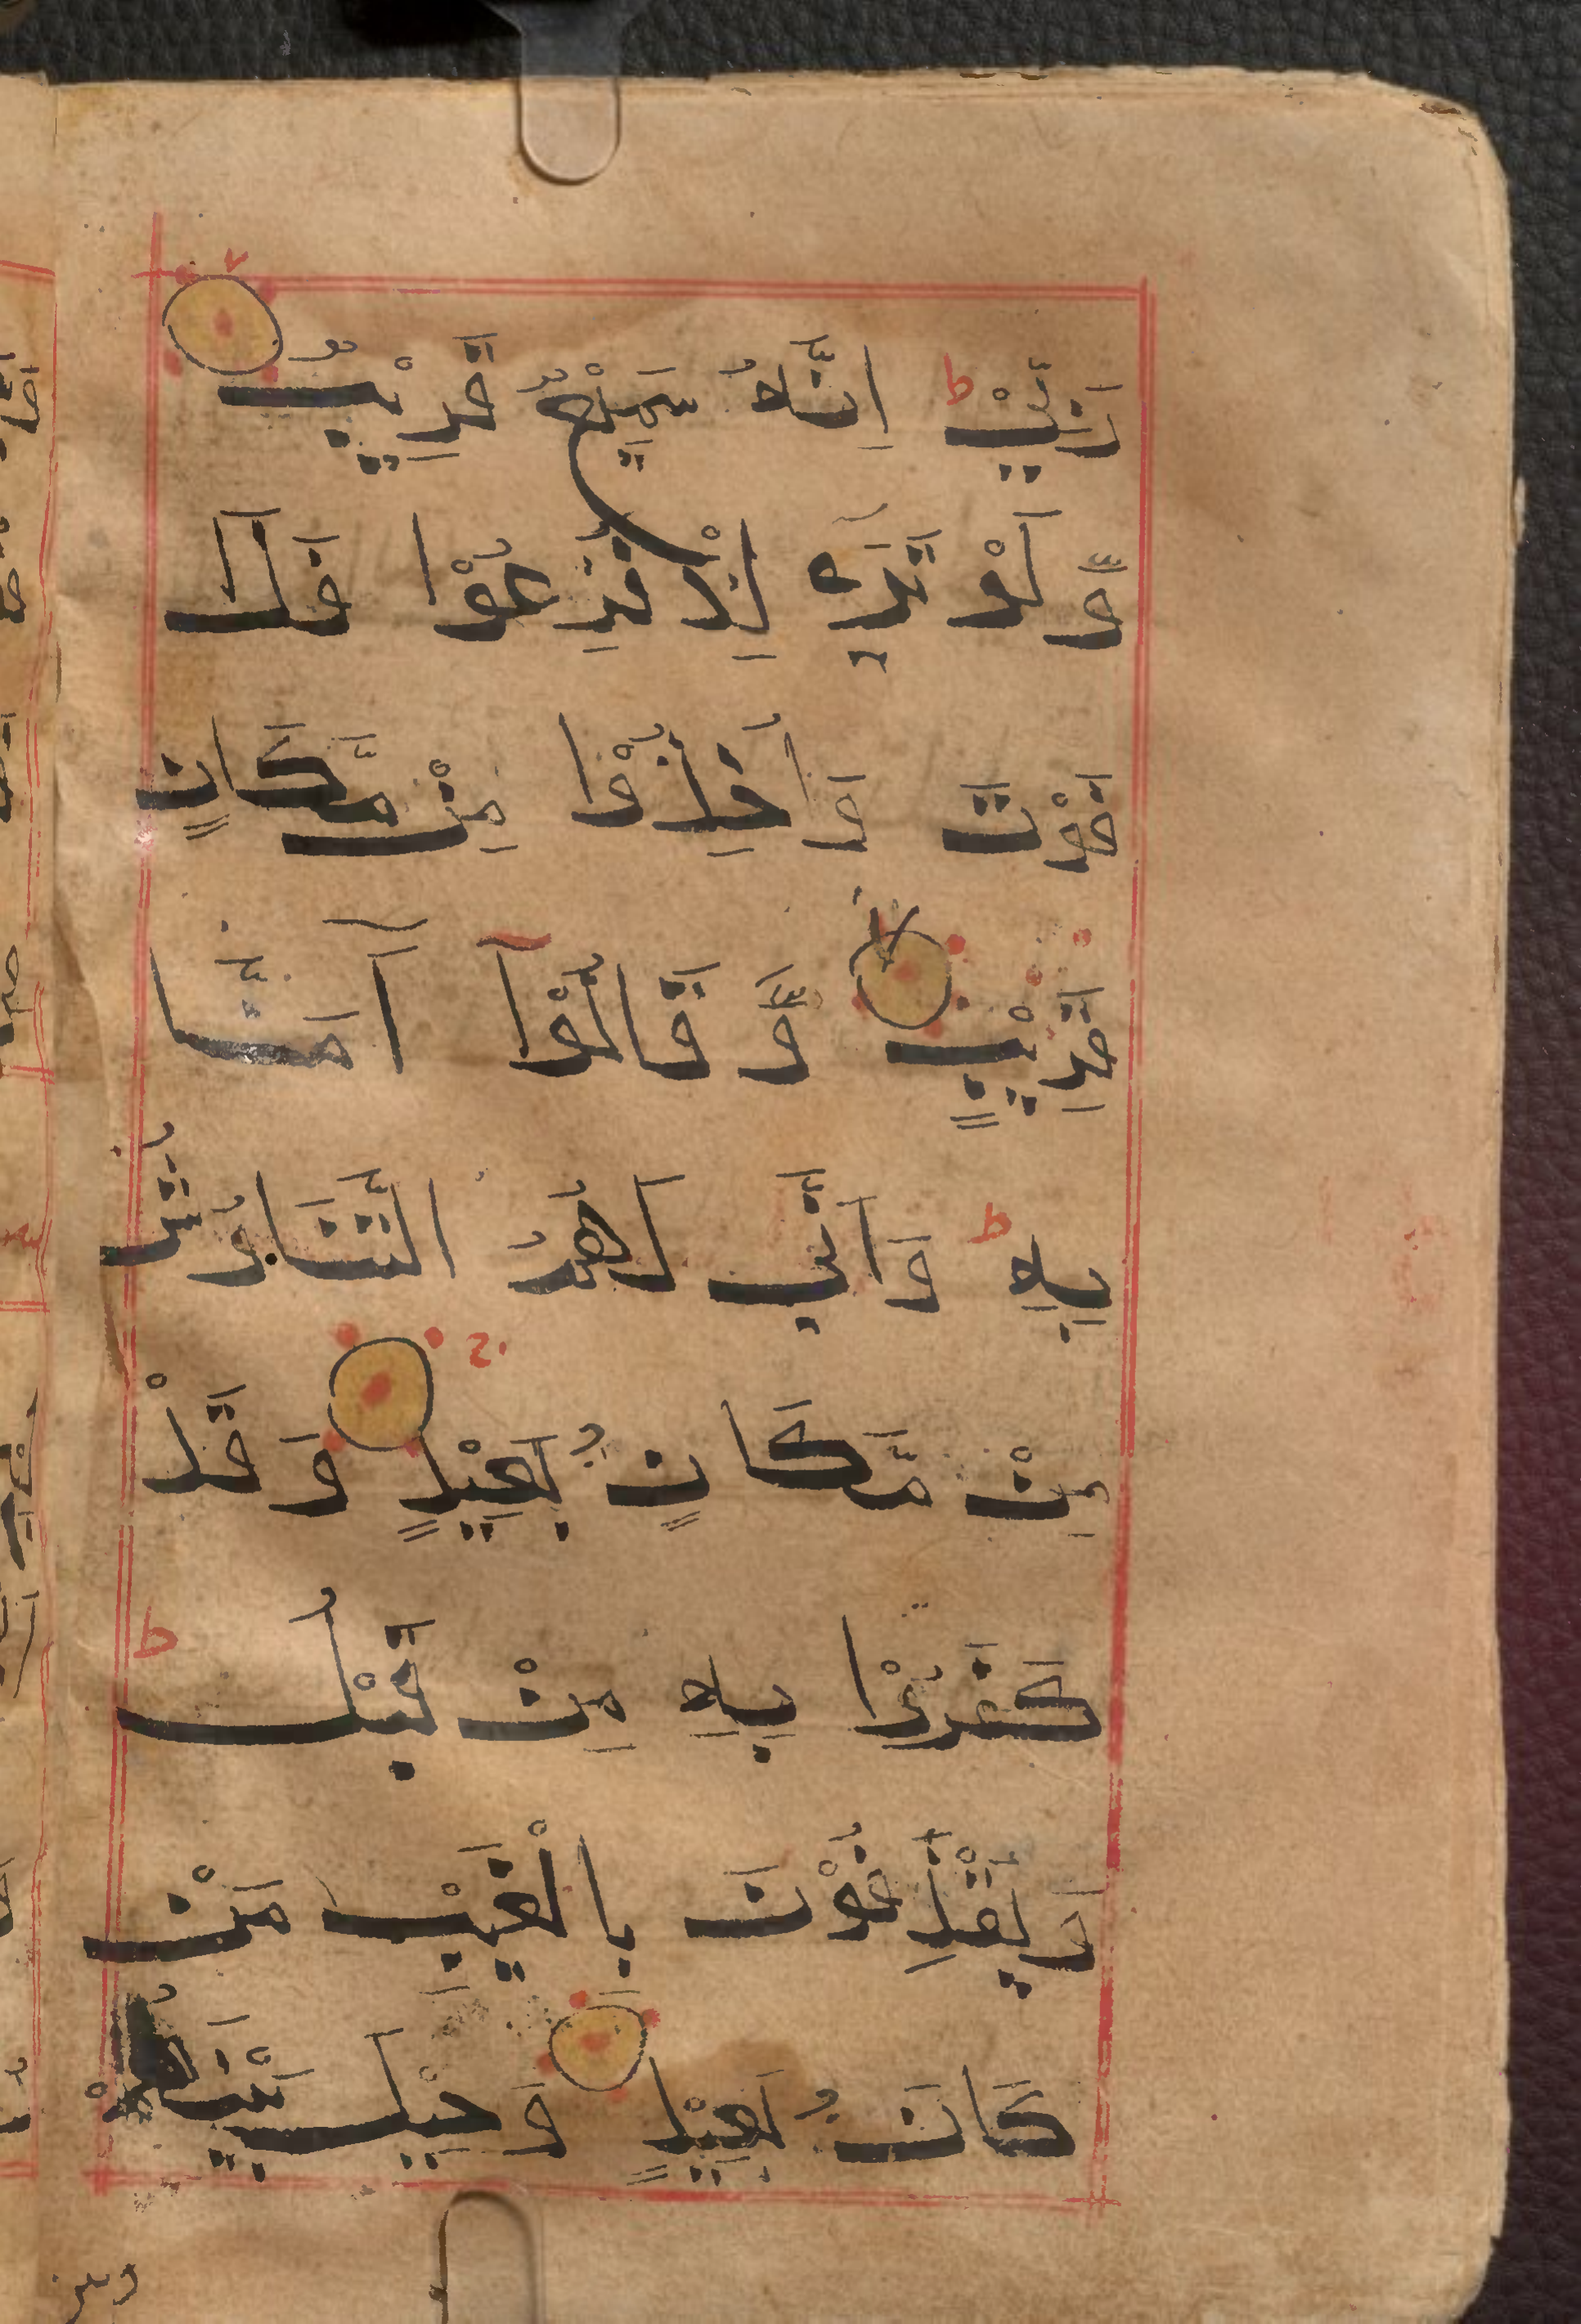 رَبِّيْ ؕ اِنَّهٗ سَمِيْعٌ قَرِيْبٌ
وَّ لَوْ تَرٰۤى اِذْ فَزِعُوْا فَلَا
فَوْتَ وَ اُخِذُوْا مِنْ مَّكَانٍ
قَرِيْبٍ وَّ قَالُوْۤا اٰمَنَّا
بِهٖ ؕ وَ اَنّٰى لَهُمُ التَّنَاوُشُ
مِنْ مَّكَانٍۭ بَعِيْدٍ وَ قَدْ
كَفَرُوْا بِهٖ مِنْ قَبْلُ ؕ
وَ يَقْذِفُوْنَ بِالْغَيْبِ مِنْ
مَكَانٍۭ بَعِيْدٍ وَ حِيْلَ بَيْنَهُمْ
وبين